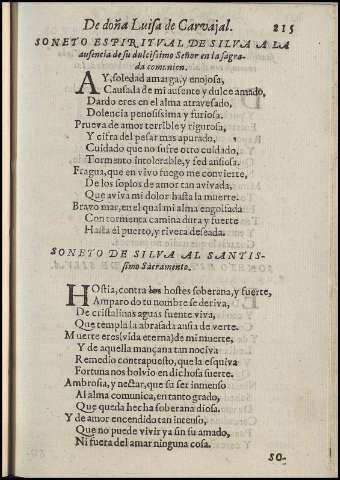 De doña Luisa de Carvajal. 215
SONETO ESPIRITVAL DE SILVA A LA
ausencia de su dulcissimo Señor en la sagra-
da comunion.
AY, soledad amarga, y enojosa,
Causada de mi ausente y dulce amado,
Dardo eres en el alma atravesado,
Dolencia penosissima y furiosa.
Prueva de amor terrible y rigurosa,
Y cifra del pesar mas apurado,
Cuidado que no sufre otro cuidado,
Tormento intolerable, y sed ansiosa.
Fragua, que en vivo fuego me convierte,
De los soplos de amor tan avivada,
Que aviva mi dolor hasta la muerte.
Bravo mar, en el qual mi alma engolfada
Con tormenta camina dura y fuerte
Hasta el puerto, y rivera deseada.
SONETO DE SILVA AL SANTIS-
simo Sacramento.
HOstia, contra los hostes soberana, y fuerte,
Amparo do tu nombre se deriva,
De cristalinas aguas fuente viva,
Que templa la abrasada ansia de verte.
Muerte eres (vida eterna) de mi muerte,
Y de aquella mançana tan nociva
Remedio contrapuesto, que la esquiva
Fortuna nos bolvio en dichosa suerte.
Ambrosia, y nectar, que su ser inmenso
Al alma comunica, en tanto grado,
Que queda hecha soberana diosa.
Y de amor encendido tan intenso,
Que no puede vivir ya sin su amado,
Ni fuera del amar ninguna cosa.
SO-